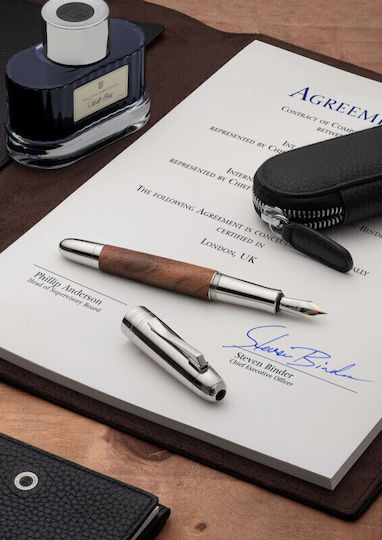 Cobalt Blue
AGREEMENT
CONTRACT OF COMP
BETWE
INT
REPRESENTED BY CHIEF
INTERN
REPRESENTED BY CHIEF
THE FOLLOWING AGREEMENT IS CONCLU ALLY
CERTIFIED IN
LONDON, UK
Phillip Anderson
Head of Supervisory Board
Steven Binder
Steven Binder
Chief Executive Officer